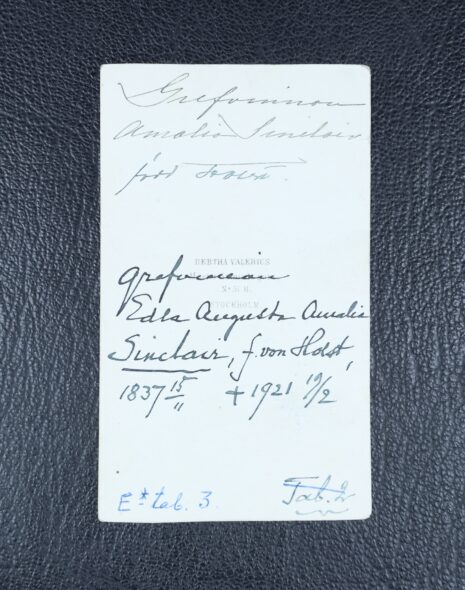 Grefvinnan
Amalia Sinclair
född Holst.
BERTHA VALERIUS
STOCKHOLM
grefvinnan
Edla Augusta Amalia
Sinclair, f. von Holst,
1837 15/11 + 1921 19/2
E* tab. 3.
Tab. 2